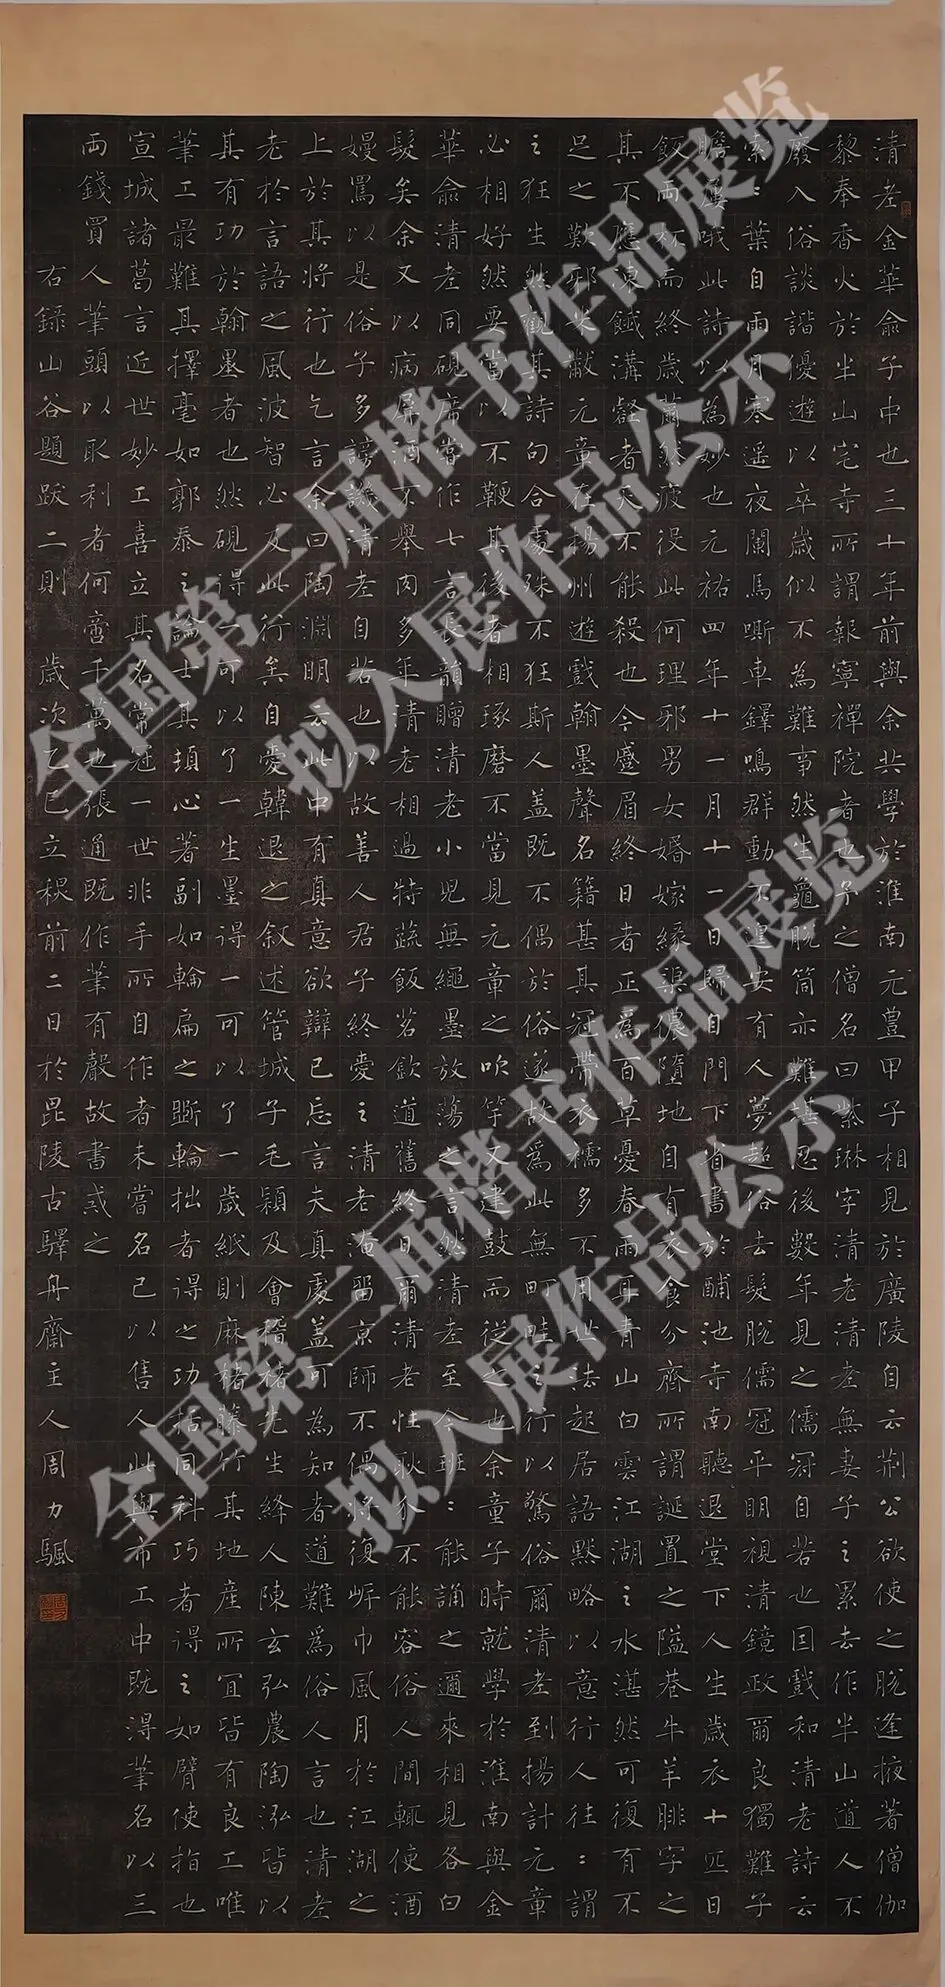 清老金華俞子中也三十年前與余共學於淮南元豊甲子相見於廣陵自云荊公欲使之脫逢掖著僧伽
黎奉香火於半山宅寺所謂報寧禪院者也予之僧名曰紫琳字清老清老無妻子之累去作半山道人不
廢入俗談諧優遊以卒歲似不為難事然生龜脫筒亦難堪忍後數年見之儒冠自若也因戲和清老詩云
索:葉自雨月寒遥夜闌馬嘶車鐸鳴群動不遑安有人夢超俗去髮脫儒冠平明視清鏡政爾良獨難子
瞻屢哦此詩以為妙也元祐四年十一月十一日歸自門下省書於酺池寺南聽退堂下人生歲衣十匹日
飯兩杯而終歲薾然疲役此何理邪男女婚嫁緣渠儂墮地自有衣食分齊所謂誕置之隘巷牛羊腓字之
其不應凍餓溝壑者天不能殺也今蹙眉終日者正為百草憂春雨耳青山白雲江湖之水湛然可復有不
足之歎邪米黻元章在揚州遊戲翰墨聲名籍甚其冠帶衣襦多不用世法起居語默略以意行人往:謂
之狂生然觀其詩句合處殊不狂斯人蓋既不偶於俗遂故為此無町畦之行以驚俗爾清老到揚計元章
必相好然要當以不鞭其後者相琢磨不當見元章之吹竽又建鼓而從之也余童子時就學於淮南與金
華俞清老同硯席嘗作七言長韻贈清老小兒無繩墨放蕩之言然清老至今班:能誦之邇來相見各白
髮矣余又以病屏酒不舉肉多年清老相過特蔬飯茗飲道舊終日爾清老性耿介不能容俗人間輒使酒
嫚罵以是俗子多謗譏清老自若也以故善人君子終愛之清老淹留京師不偶將復岸巾風月於江湖之
上於其將行也乞言余曰陶淵明云此中有真意欲辯已忘言夫真處蓋可為知者道難為俗人言也清老
老於言語之風波智必及此行矣自愛韓退之敘述管城子毛穎及會稽褚先生絳人陳玄弘農陶泓皆以
其有功於翰墨者也然硯得一可以了一生墨得一可以了一歲紙則麻楮藤竹其地產所宜皆有良工唯
筆工最難其擇毫如郭泰之論士其頓心著副如輪扁之斲輪拙者得之功楛同科巧者得之如臂使指也
宣城諸葛言近世妙工喜立其名常冠一世非手所自作者未嘗名己以售人此與市工中既得筆名以三
兩錢買人筆頭以取利者何啻千萬也張通既作筆有聲故書戒之
右錄山谷題跋二則 歲次乙巳立秋前二日於毘陵古驛舟齋主人周力颿
全国第三届楷书作品展览
拟入展作品公示
全国第三届楷书作品展览
拟入展作品公示